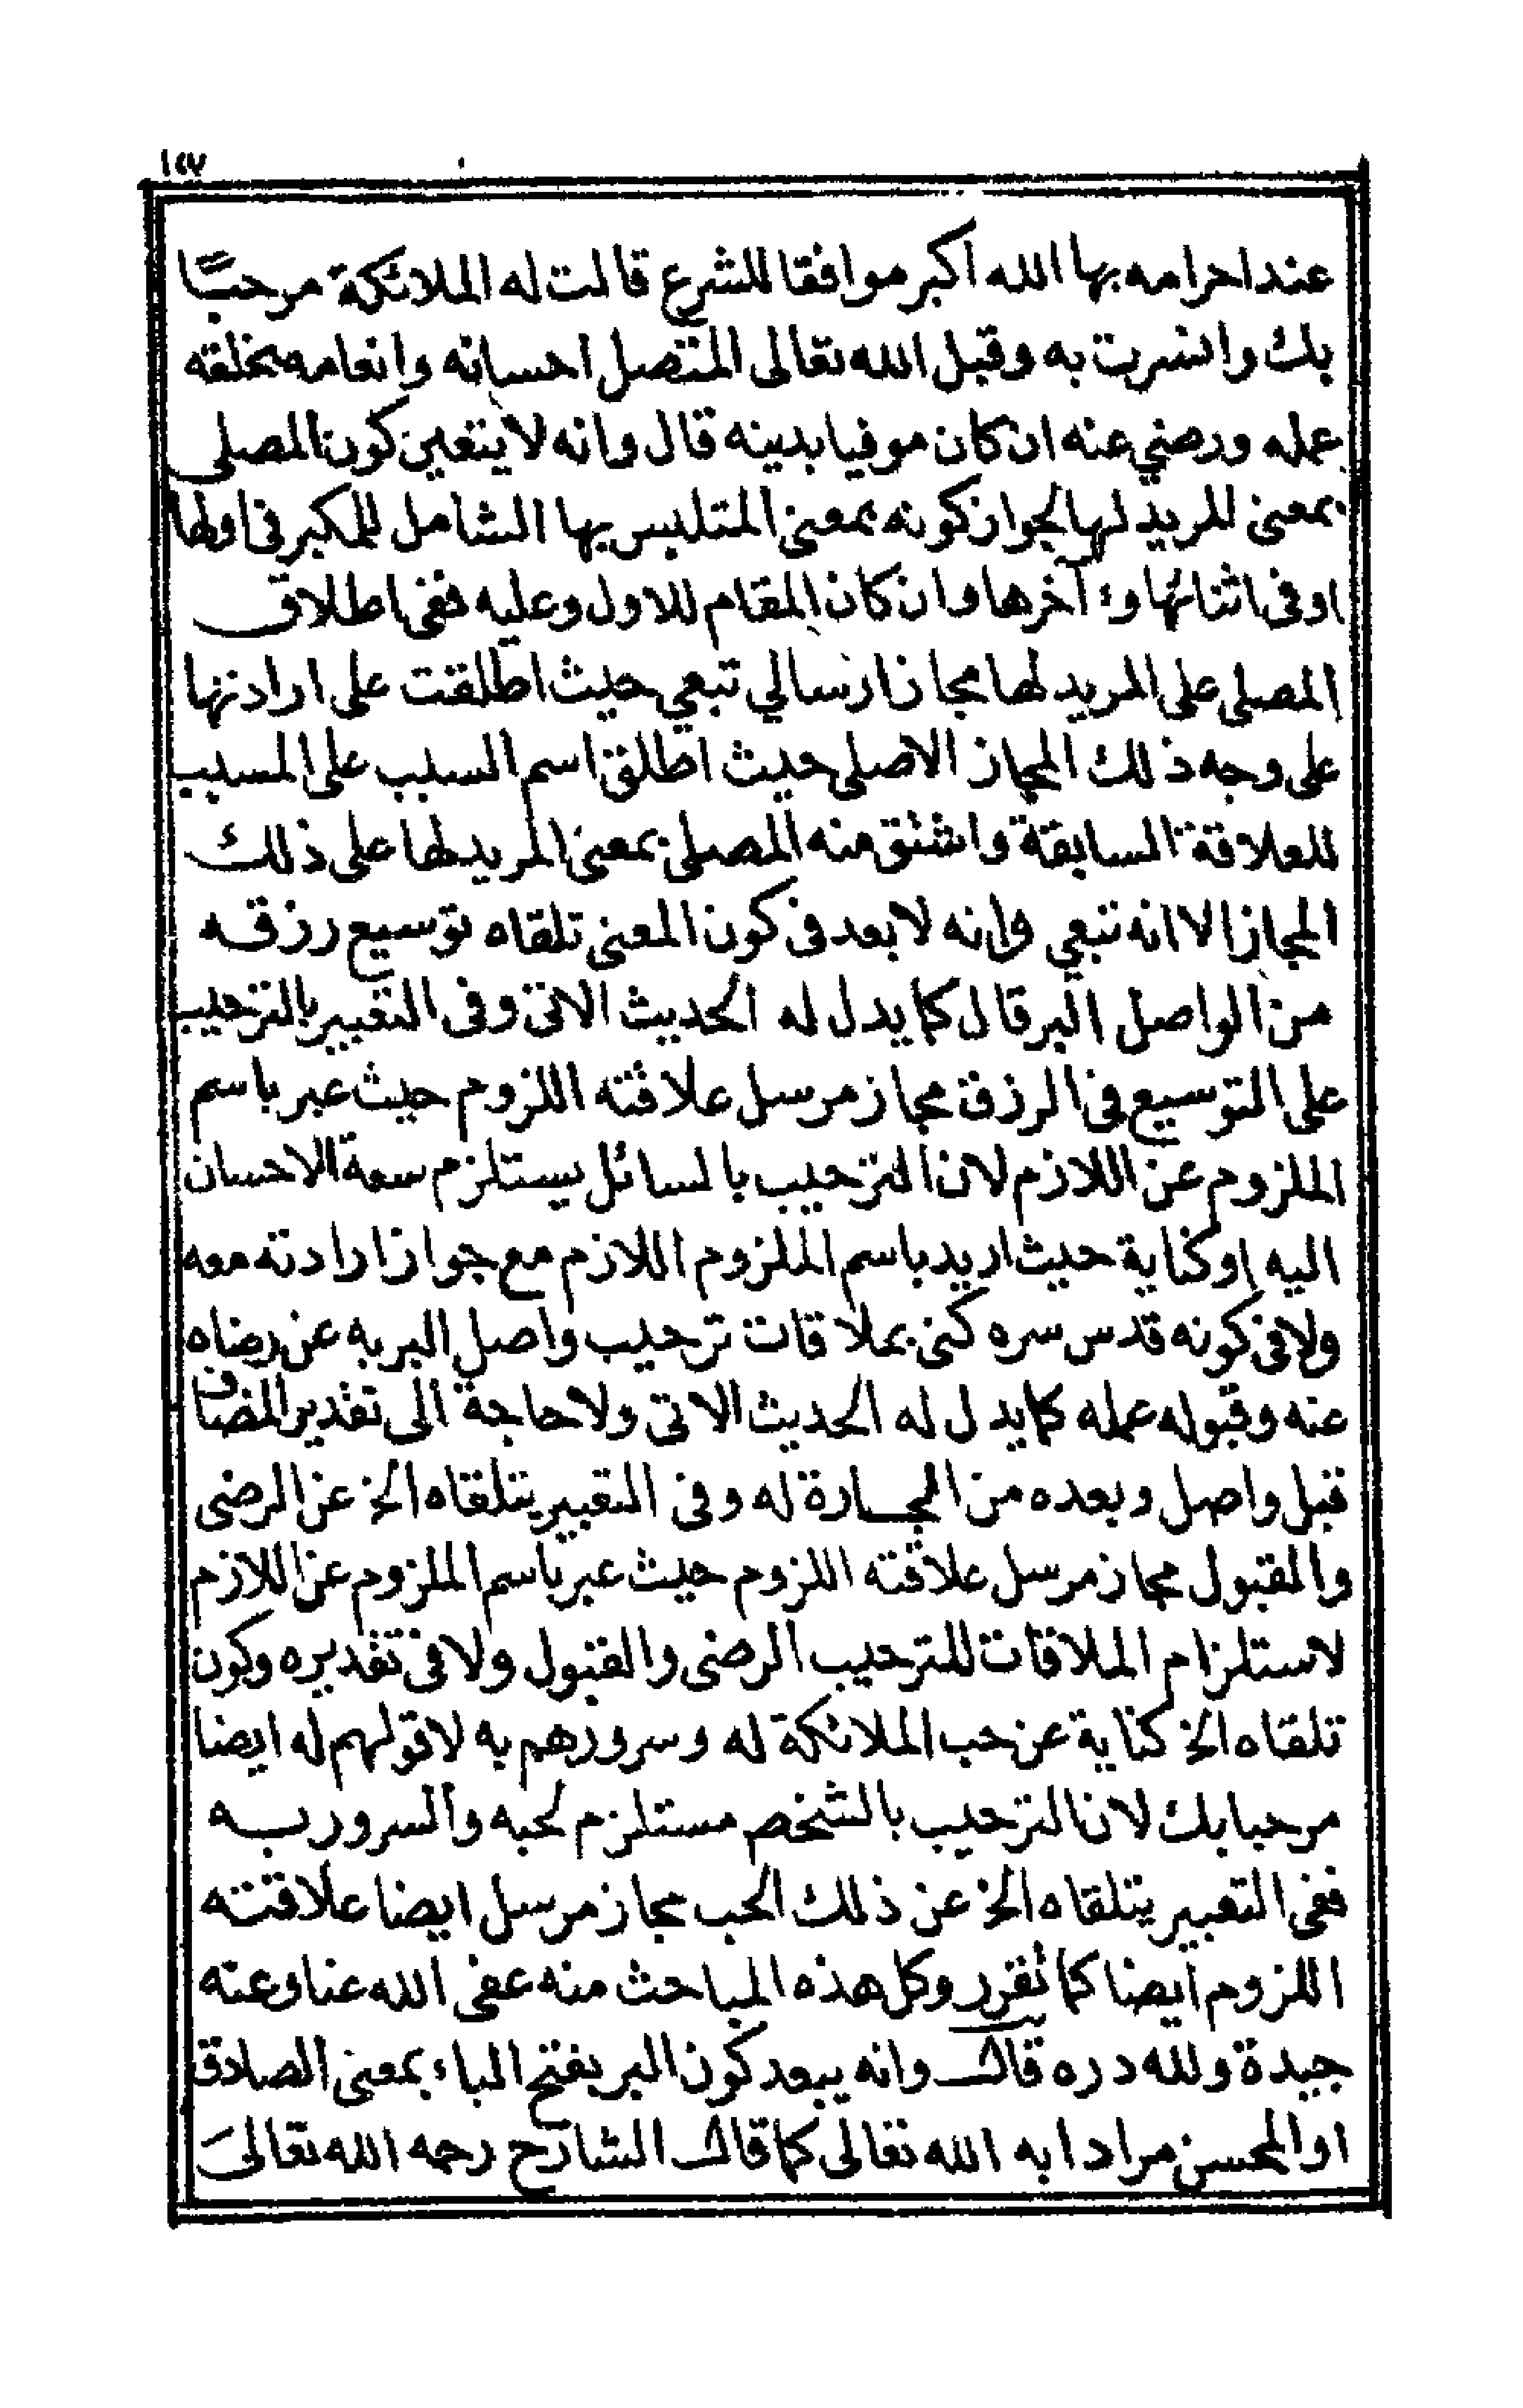 ١٥٧
عند احرامه بها الله اكبر موافقا للشرع قالت له الملائكة مرحبًا
بك وانسرت به وقبل الله تعالى المتصل احسانه وانعامه بخلقه
عمله ورضي عنه ان كان موفيا بدينه قال وانه لا يتعين كون المصلى
بمعنى المريد لها لجواز كونه بمعنى المتلبس بها الشامل للمكبر فى اولها
او فى اثنائها و آخرها وان كان المقام للاول وعليه ففى اطلاق
المصلى على المريد لها مجاز ارسالي تبعي حيث اطلقت على ارادتها
على وجه ذلك المجاز الاصلى حيث اطلق اسم السبب على المسبب
للعلاقة السابقة واشتق منه المصلى بمعنى المريد لها على ذلك
المجاز الا انه تبعي وانه لا بعد فى كون المعنى تلقاه توسيع رزقه
من الواصل البر قال كما يدل له الحديث الاتى وفى التعبير بالترحيب
على التوسيع فى الرزق مجاز مرسل علاقته اللزوم حيث عبر باسم
الملزوم عن اللازم لان الترحيب بالسائل يستلزم سعة الاحسان
اليه او كناية حيث اريد باسم الملزوم اللازم مع جواز ارادته معه
ولا فى كونه قدس سره كنى بملاقات ترحيب واصل البر به عن رضاه
عنه وقبوله عمله كما يدل له الحديث الاتى ولا حاجة الى تقدير المضاف
قبل واصل وبعده من المجارة له وفى التعبير يتلقاه الخ عن الرضى
والقبول مجاز مرسل علاقته اللزوم حيث عبر باسم الملزوم عن اللازم
لاستلزام الملاقات للترحيب الرضى والقبول ولا فى تقديره وكون
تلقاه الخ كناية عن حب الملائكة له وسرورهم به لا قولهم له ايضا
مرحبا بك لان الترحيب بالشخص مستلزم لحبه والسرور به
ففى التعبير يتلقاه الخ عن ذلك الحب مجاز مرسل ايضا علاقته
اللزوم ايضا كما تقرر وكل هذه المباحث منه عفى الله عنا وعنه
جيدة ولله دره قال وانه يبعد كون البر بفتح الباء بمعنى الصادق
او المحسن مرادا به الله تعالى كما قال الشارح رحمه الله تعالىَ